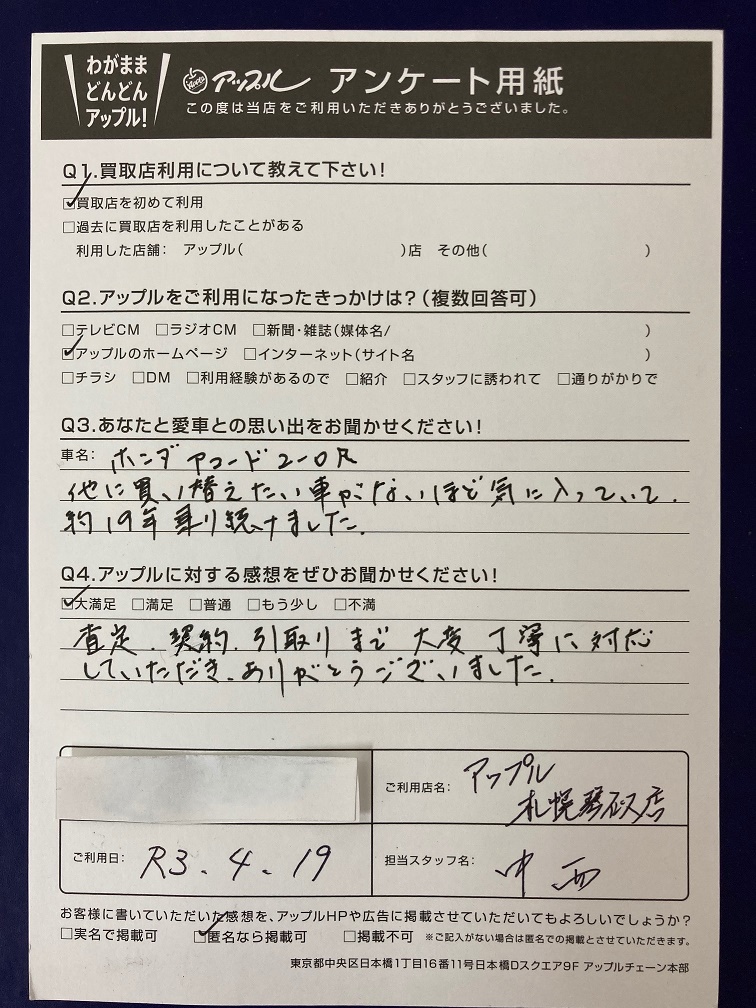 わがまま
どんどん
アップル!
アップル アンケート用紙
この度は当店をご利用いただきありがとうございました。
Q1.買取店利用について教えて下さい!
☑買取店を初めて利用
□過去に買取店を利用したことがある
利用した店舗: アップル( )店 その他( )
Q2.アップルをご利用になったきっかけは?(複数回答可)
□テレビCM □ラジオCM □新聞・雑誌(媒体名/ )
☑アップルのホームページ □インターネット(サイト名 )
□チラシ □DM □利用経験があるので □紹介 □スタッフに誘われて □通りがかりで
Q3.あなたと愛車との思い出をお聞かせください!
車名: ホンダ アコードユーロR
他に買い替えたい車がないほど気に入っていて、
約19年乗り続けました。
Q4.アップルに対する感想をぜひお聞かせください!
☑大満足 □満足 □普通 □もう少し □不満
査定、契約、引取りまで大変丁寧に対応
していただき、ありがとうございました。
ご利用店名: アップル
札幌琴似店
ご利用日: R3.4.19
担当スタッフ名: 中西
お客様に書いていただいた感想を、アップルHPや広告に掲載させていただいてもよろしいでしょうか?
□実名で掲載可 ☑匿名なら掲載可 □掲載不可 ※ご記入がない場合は匿名での掲載とさせていただきます。
東京都中央区日本橋1丁目16番11号日本橋Dスクエア9F アップルチェーン本部